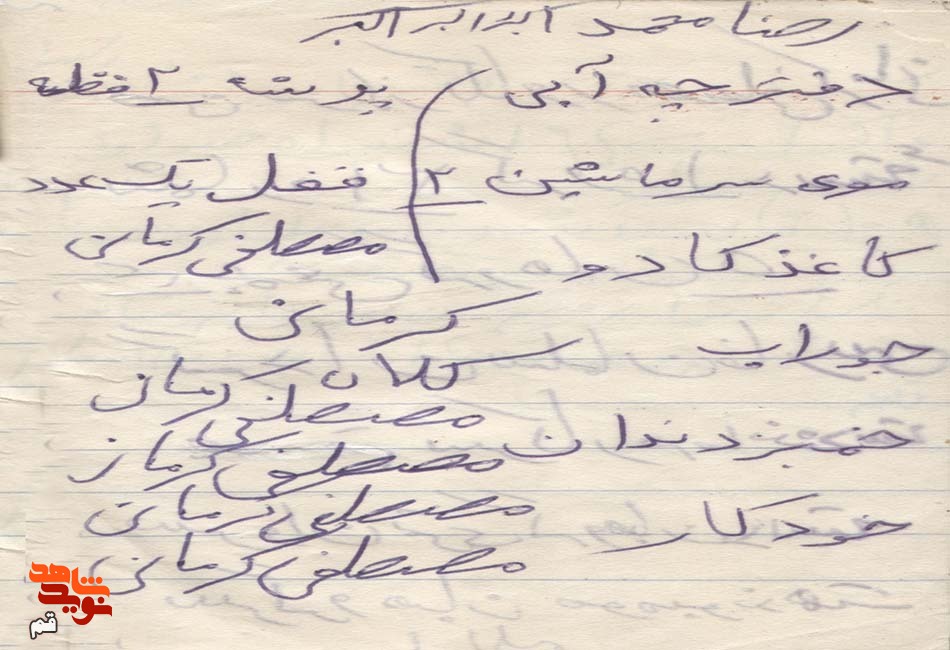 رضا محمد اکبر اکبر
دفتر چه آبی
پوشه ۲ قطعه
موی سر ماشین ۲
قفل یک عدد
مصطفی کرمانی
کاغذ کادو
کرمانی
جوراب
کرمانی
مصطفی
خمیر دندان
مصطفی کرمانی
مصطفی کرمانی
خودکار
مصطفی کرمانی
نوید شاهد
قم